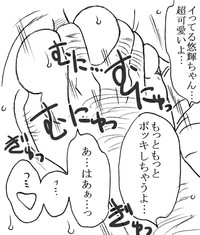 イってる悠輝ちゃん…
超可愛いよ…
むに…
むにゅ…
むにゅっ
もっともっと
ボッキしちゃうよ…
ぎゅっ
ぎゅっ
あ…はあぁ…っ